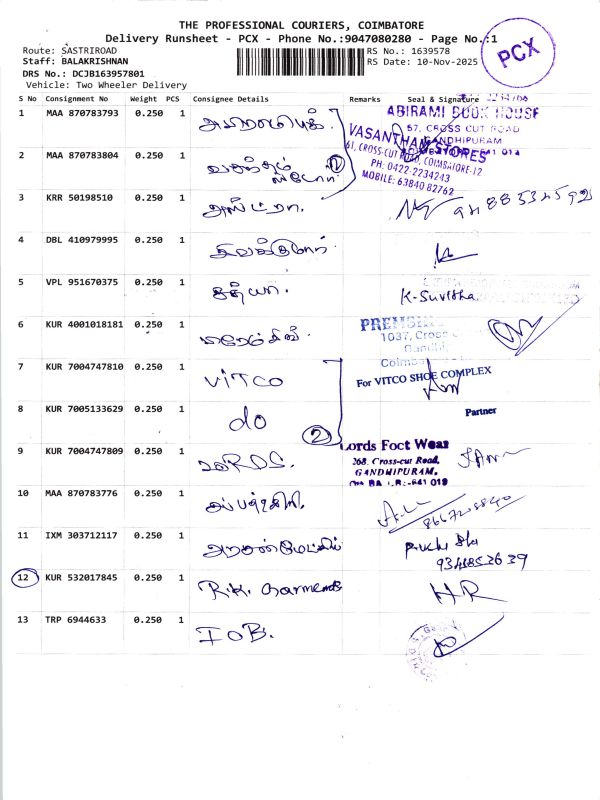 THE PROFESSIONAL COURIERS, COIMBATORE
Delivery Runsheet - PCX - Phone No.:9047080280 - Page No.:1
Route: SASTRIROAD
RS No.: 1639578
Staff: BALAKRISHNAN
RS Date: 10-Nov-2025
DRS No.: DCJB163957801
Vehicle: Two Wheeler Delivery
PCX
S No Consignment No Weight PCS Consignee Details Remarks Seal & Signature
1 MAA 870783793 0.250 1
ABIRAMI BOOK HOUSE
57, CROSS CUT ROAD
GANDHIPURAM
2 MAA 870783804 0.250 1 வசந்தம் ஸ்டோர் 2
VASANTHAM STORES
61, CROSS-CUT ROAD, COIMBATORE-12
PH: 0422-2234243
MOBILE: 63840 82762
3 KRR 50198510 0.250 1
4 DBL 410979995 0.250 1
5 VPL 951670375 0.250 1 சத்யா. K-Suvitha
6 KUR 4001018181 0.250 1
1037, Cross
7 KUR 7004747810 0.250 1 VITCO
For VITCO SHOE COMPLEX
Partner
8 KUR 7005133629 0.250 1 do 2
9 KUR 7004747809 0.250 1 LORDS.
Lords Foot Wear
268, Cross-cut Road,
GANDHIPURAM,
10 MAA 870783776 0.250 1
11 IXM 303712117 0.250 1
12 KUR 532017845 0.250 1 R.K. Garments HR
13 TRP 6944633 0.250 1 IOB.